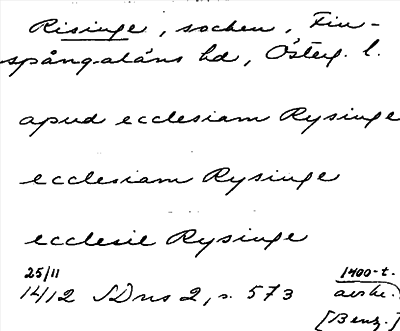 Risinge, socken, Fin-
spångaläns hd, Österg. l.
apud ecclesiam Rysinge
ecclesiam Rysinge
ecclesie Rysinge
25/11 1400-t.
1412 SDns 2, s. 573 avskr.
[Benz.]